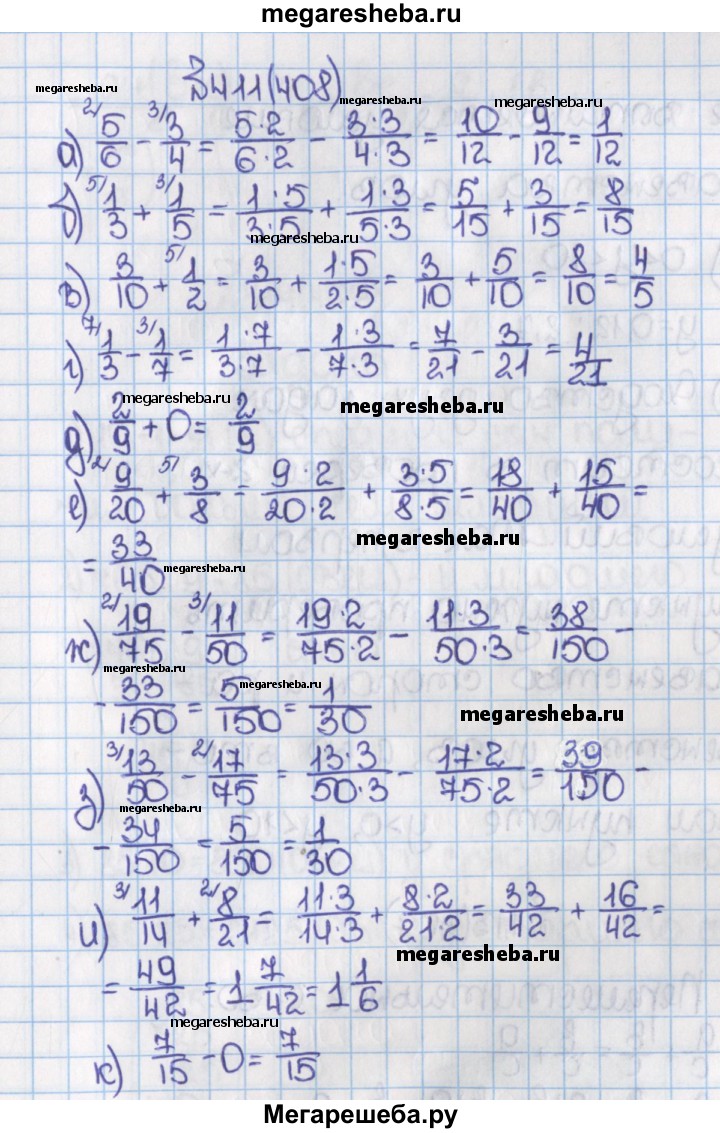 megaresheba.ru
№411(408)
megaresheba.ru
megaresheba.ru
а) ²/5/6 - ³/3/4 = 5·2/6·2 - 3·3/4·3 = 10/12 - 9/12 = 1/12
б) ⁵/1/3 + ³/1/5 = 1·5/3·5 + 1·3/5·3 = 5/15 + 3/15 = 8/15
megaresheba.ru
в) 3/10 + ⁵/1/2 = 3/10 + 1·5/2·5 = 3/10 + 5/10 = 8/10 = 4/5
г) ⁷/1/3 - ³/1/7 = 1·7/3·7 - 1·3/7·3 = 7/21 - 3/21 = 4/21
megaresheba.ru
megaresheba.ru
д) 2/9 + 0 = 2/9
е) ²/9/20 + ⁵/3/8 = 9·2/20·2 + 3·5/8·5 = 18/40 + 15/40 =
megaresheba.ru
= 33/40
megaresheba.ru
ж) ²/19/75 - ³/11/50 = 19·2/75·2 - 11·3/50·3 = 38/150 -
megaresheba.ru
- 33/150 = 5/150 = 1/30
megaresheba.ru
megaresheba.ru
з) ³/13/50 - ²/17/75 = 13·3/50·3 - 17·2/75·2 = 39/150 -
megaresheba.ru
- 34/150 = 5/150 = 1/30
и) ³/11/14 + ²/8/21 = 11·3/14·3 + 8·2/21·2 = 33/42 + 16/42 =
megaresheba.ru
= 49/42 = 1 7/42 = 1 1/6
megaresheba.ru
к) 7/15 - 0 = 7/15
Мегарешеба.ру